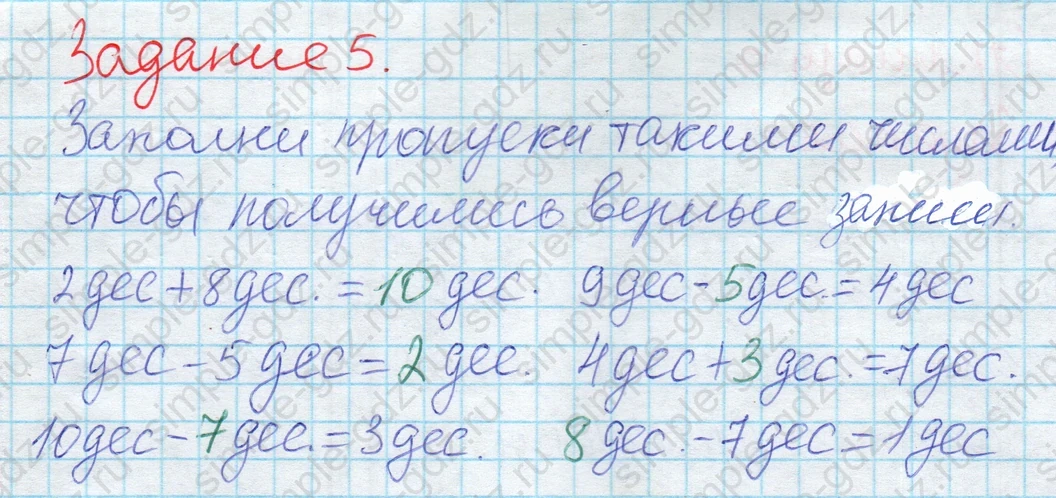 Задание 5.
Заполни пропуски такими числами,
чтобы получились верные записи.
2дес+8дес.=10дес. 9дес-5дес.=4дес
7дес-5дес=2дес. 4дес+3дес.=7дес.
10дес-7дес.=3дес. 8дес.-7дес=1дес